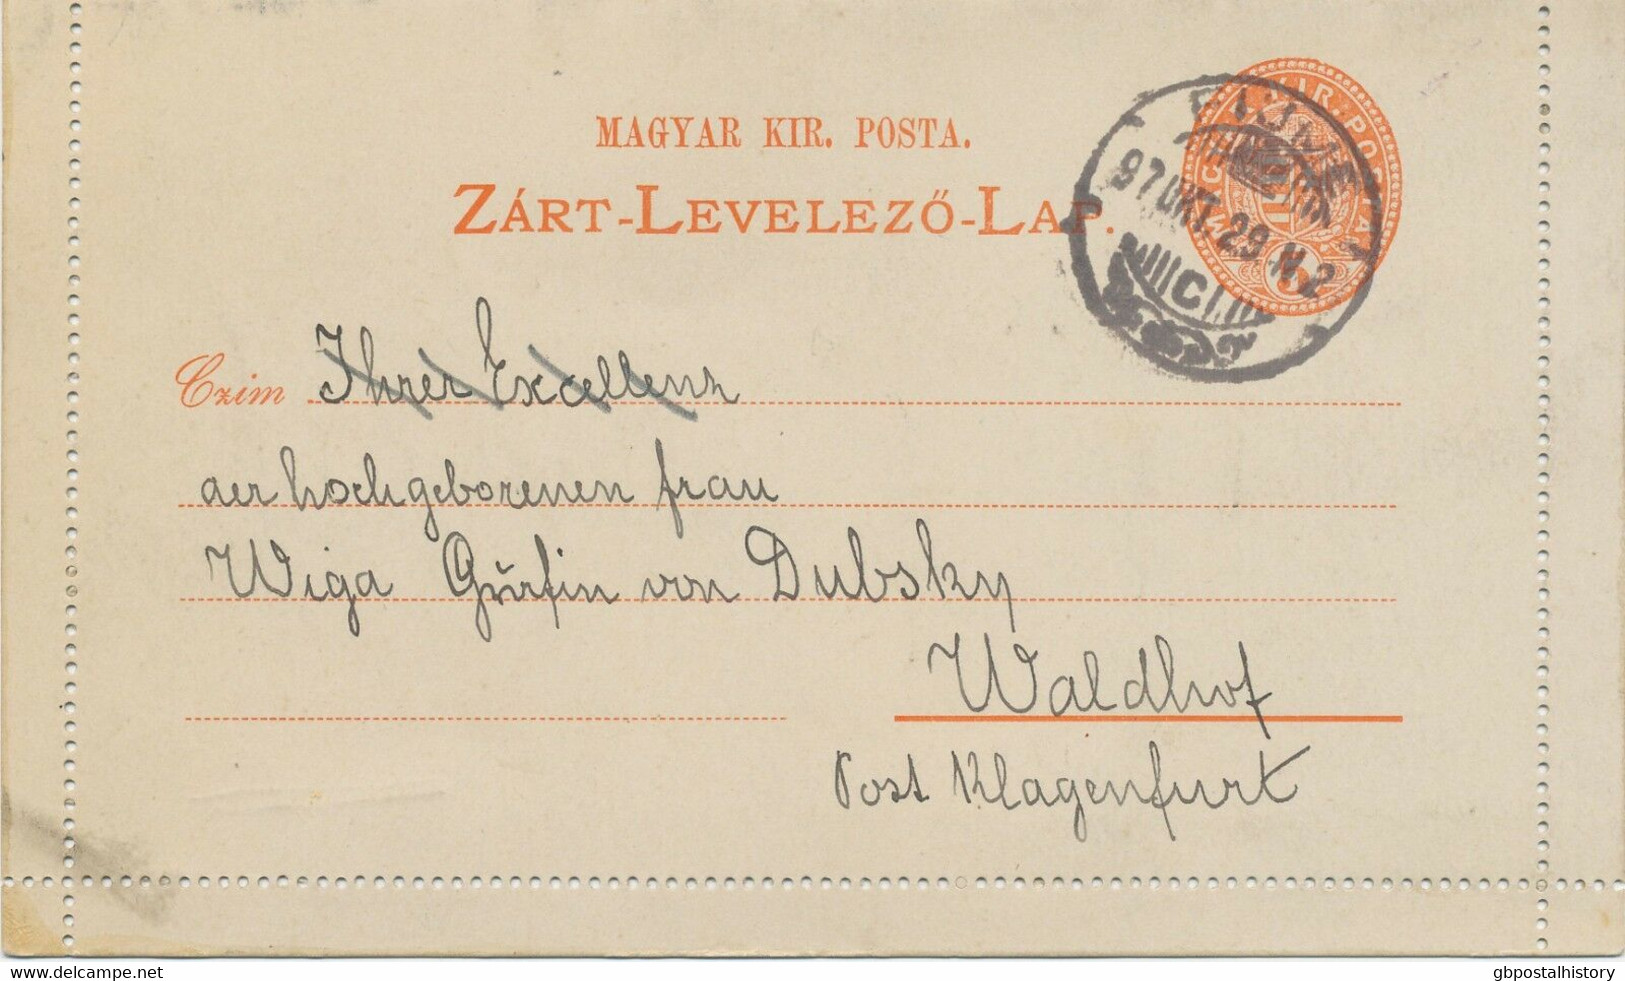 MAGYAR KIR. POSTA.
ZÁRT-LEVELEZŐ-LAP.
MAGY. KIR. POSTA
5
FIUME
97 OKT. 29. N. 2
C I.
Czim Ihrer Excellenz
der hochgeborenen frau
Wiga Gräfin von Dubsky
Waldhof
Post Klagenfurt
www.delcampe.net
gbpostalhistory